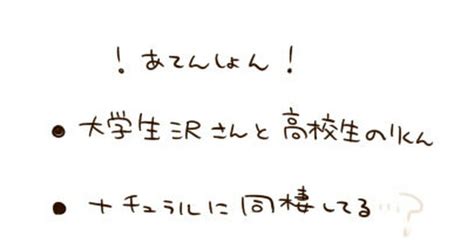 ！あてんしょん！
● 大学生沢さんと高校生のりくん
● ナチュラルに同棲してる…？